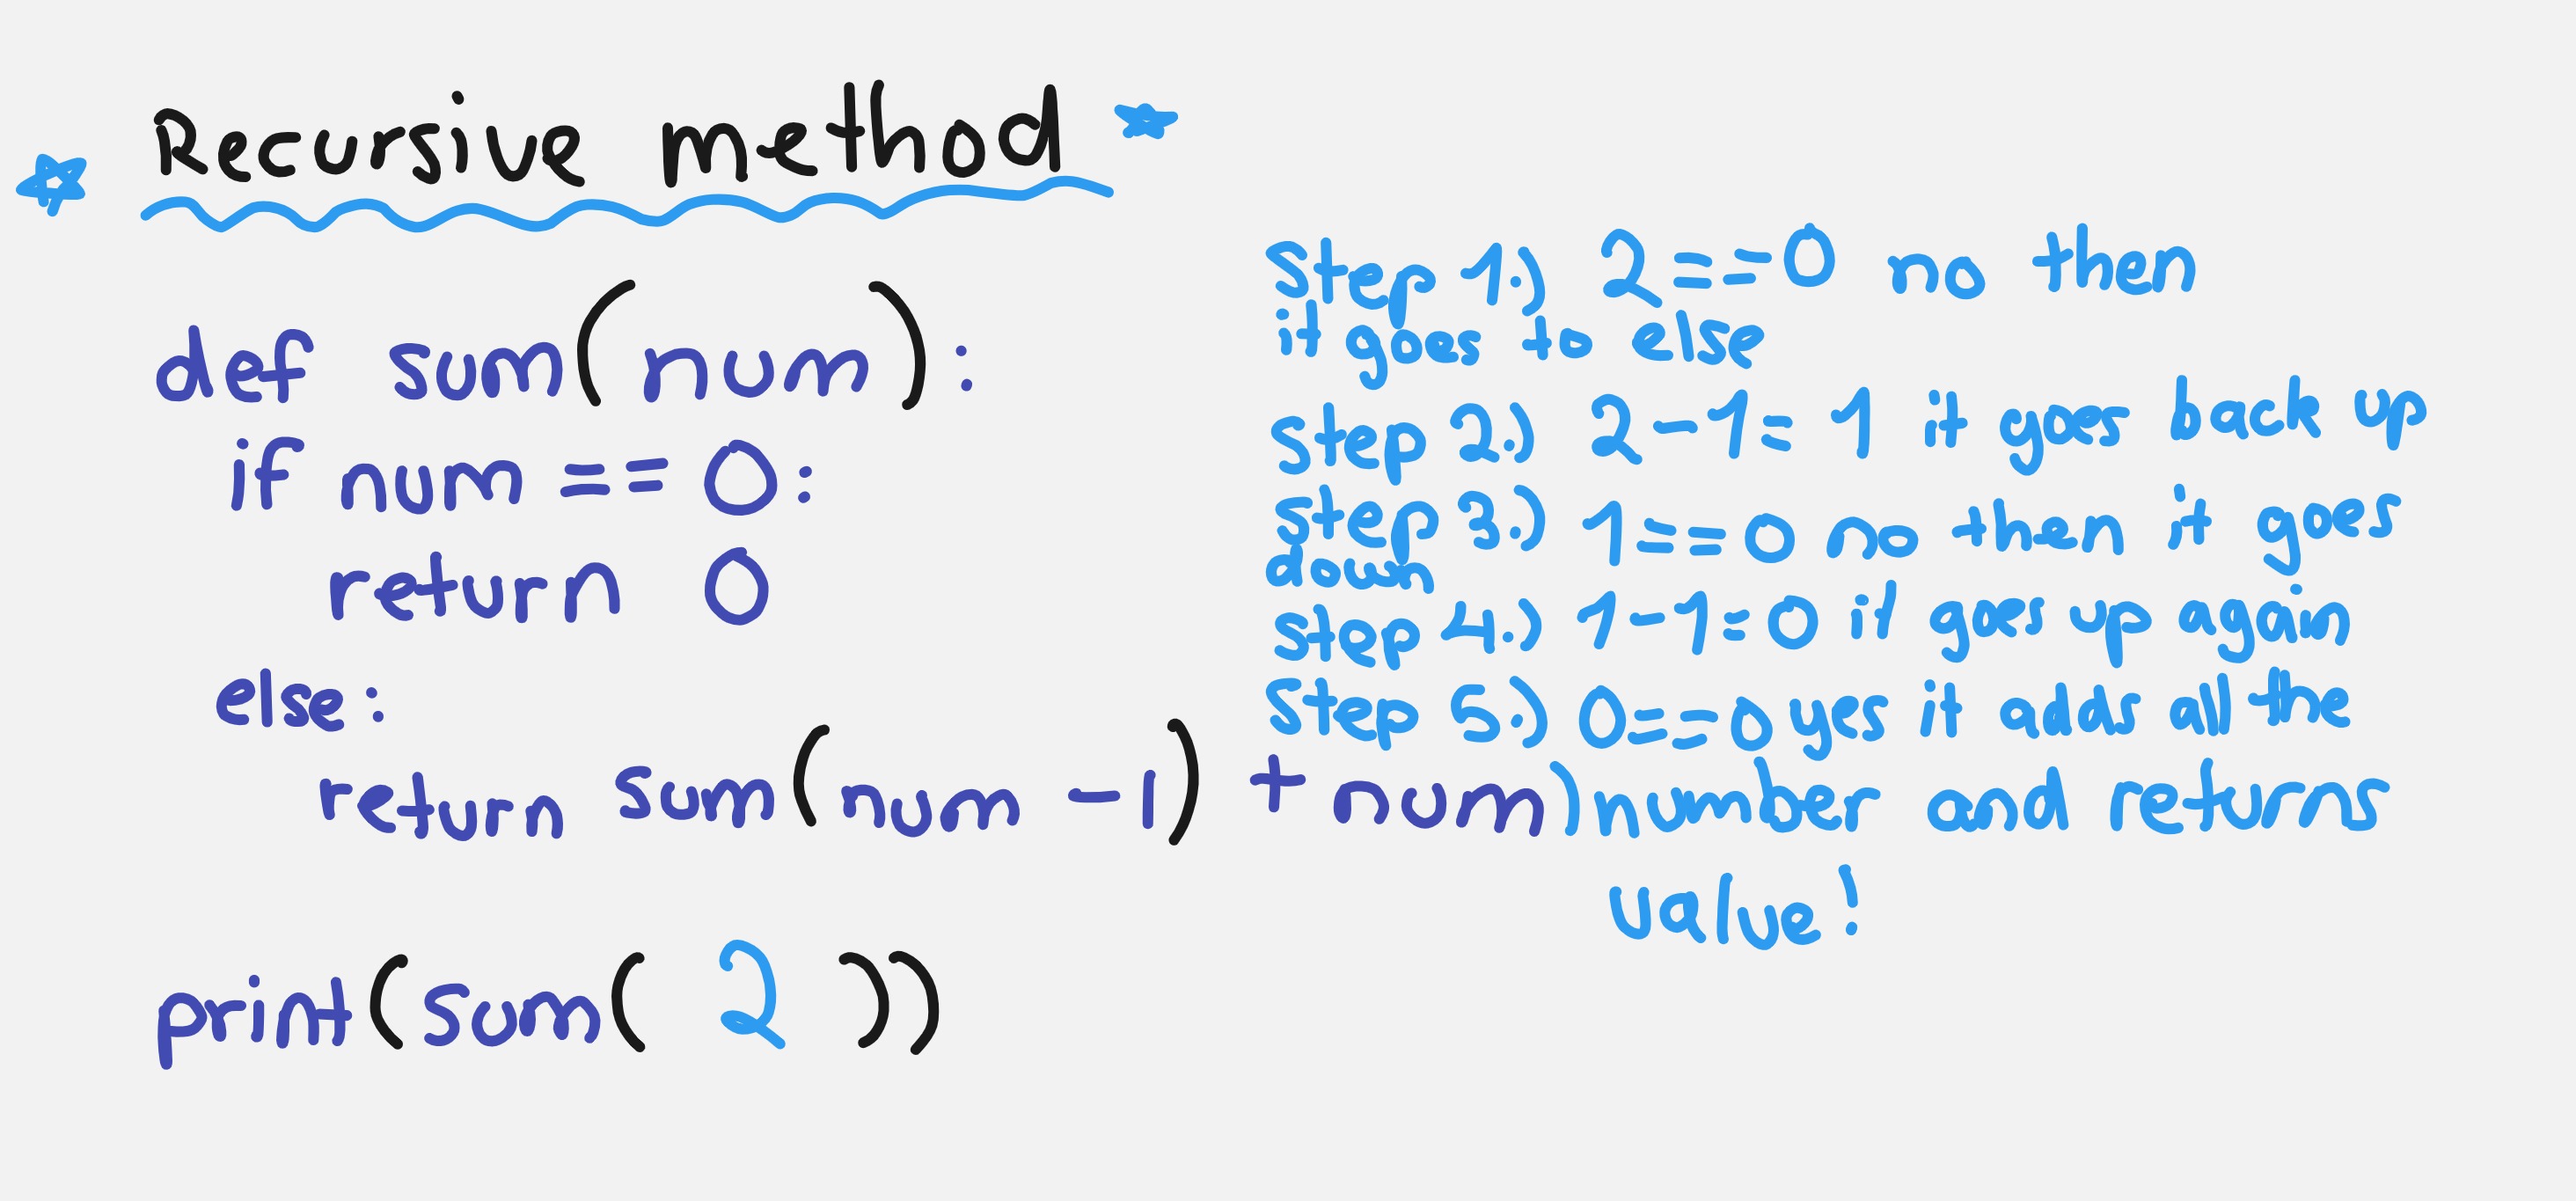 Recursive method
def sum(num):
if num == 0:
return 0
else:
return sum(num - 1) + num)
print(sum( 2 ))
Step 1.) 2==0 no then
it goes to else
step 2.) 2-1= 1 it goes back up
step 3.) 1==0 no then it goes
down
step 4.) 1-1=0 it goes up again
Step 5.) 0==0 yes it adds all the
number and returns
value!